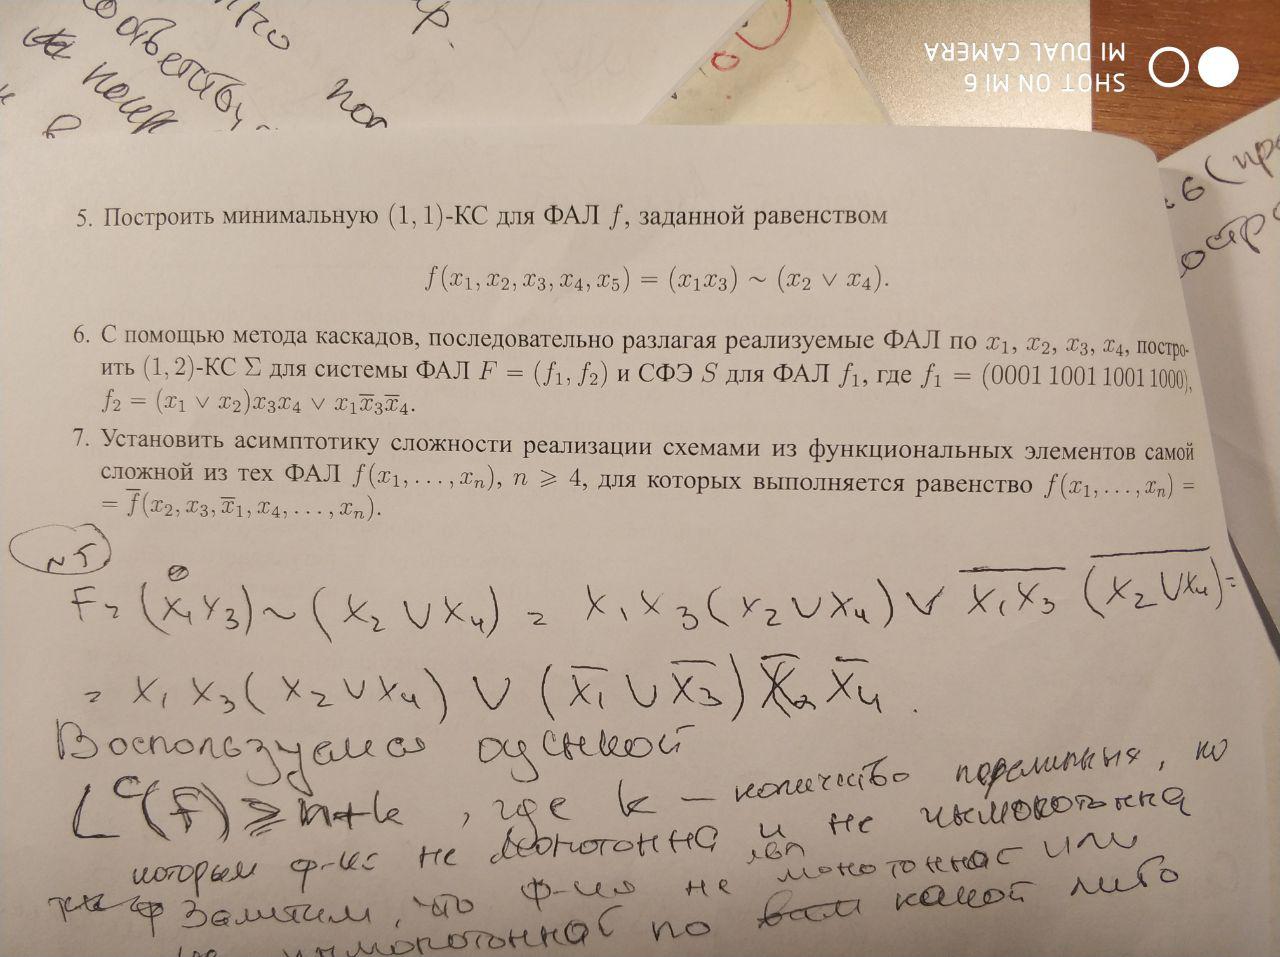 SHOT ON MI 6
MI DUAL CAMERA
5. Построить минимальную (1, 1)-КС для ФАЛ f, заданной равенством
f(x₁, x₂, x₃, x₄, x₅) = (x₁x₃) ~ (x₂ ∨ x₄).
6. С помощью метода каскадов, последовательно разлагая реализуемые ФАЛ по x₁, x₂, x₃, x₄, постро-
ить (1, 2)-КС Σ для системы ФАЛ F = (f₁, f₂) и СФЭ S для ФАЛ f₁, где f₁ = (0001 1001 1001 1000),
f₂ = (x₁ ∨ x₂)x₃x₄ ∨ x₁x̅₃x̅₄.
7. Установить асимптотику сложности реализации схемами из функциональных элементов самой
сложной из тех ФАЛ f(x₁, . . . , xₙ), n ⩾ 4, для которых выполняется равенство f(x₁, . . . , xₙ) =
= f̅(x₂, x₃, x̅₁, x₄, . . . , xₙ).
N5
F = (x₁x₃) ~ (x₂ ∨ x₄) = x₁x₃(x₂ ∨ x₄) ∨ x̅₁x̅₃̅ (x̅₂̅ ̅∨̅ ̅x̅₄̅) =
= x₁x₃(x₂ ∨ x₄) ∨ (x̅₁ ∨ x̅₃) x̅₂ x̅₄.
Воспользуемся оценкой
Lᶜ(f) ⩾ n+k, где k – количество переменных, по
которым ф-ия не монотонна и не инмонотонна
Заметим, что ф-ия не явл монотонной или
инмонотонной по какой либо